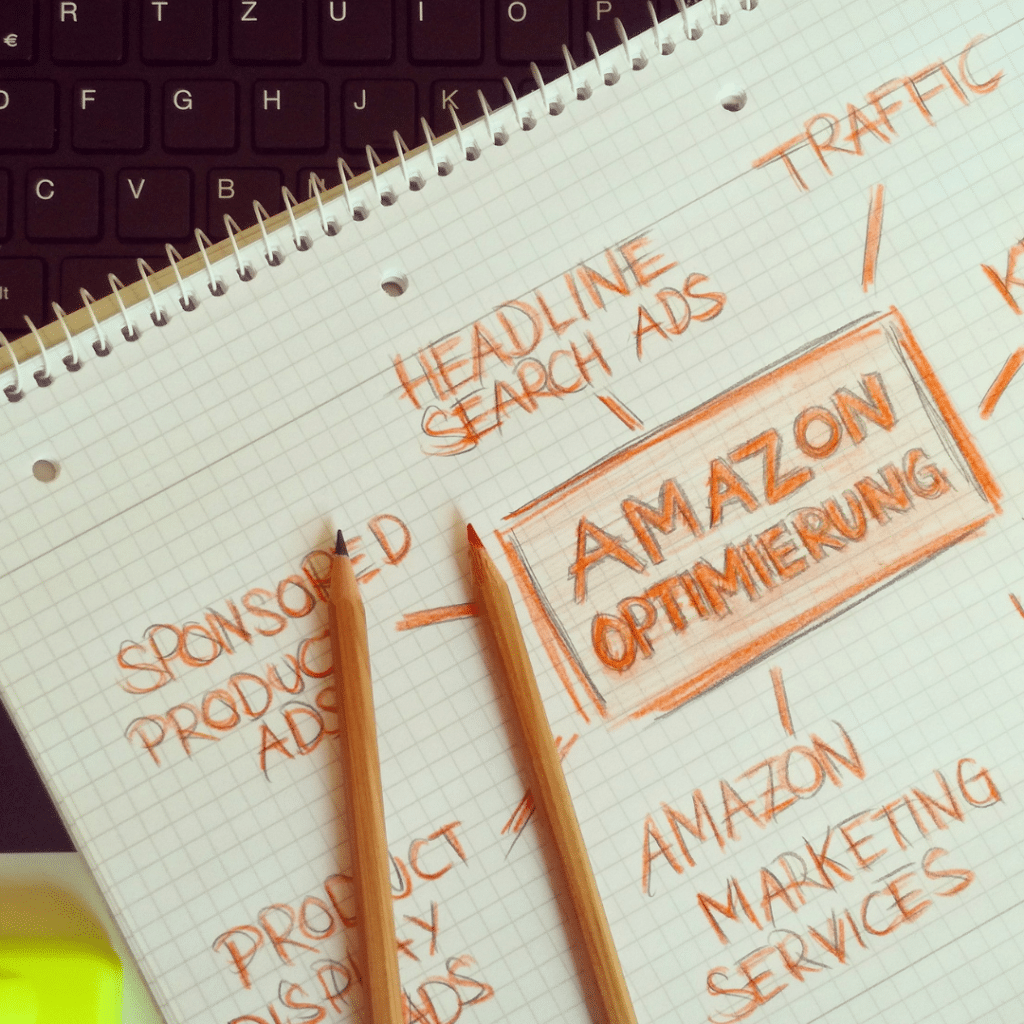 R T Z U I O P
€
D F G H J K
C V B N
TRAFFIC
K
HEADLINE
SEARCH ADS
AMAZON
OPTIMIERUNG
SPONSORED
PRODUCT
ADS
AMAZON
MARKETING
SERVICES
PRODUCT
DISPLAY
ADS